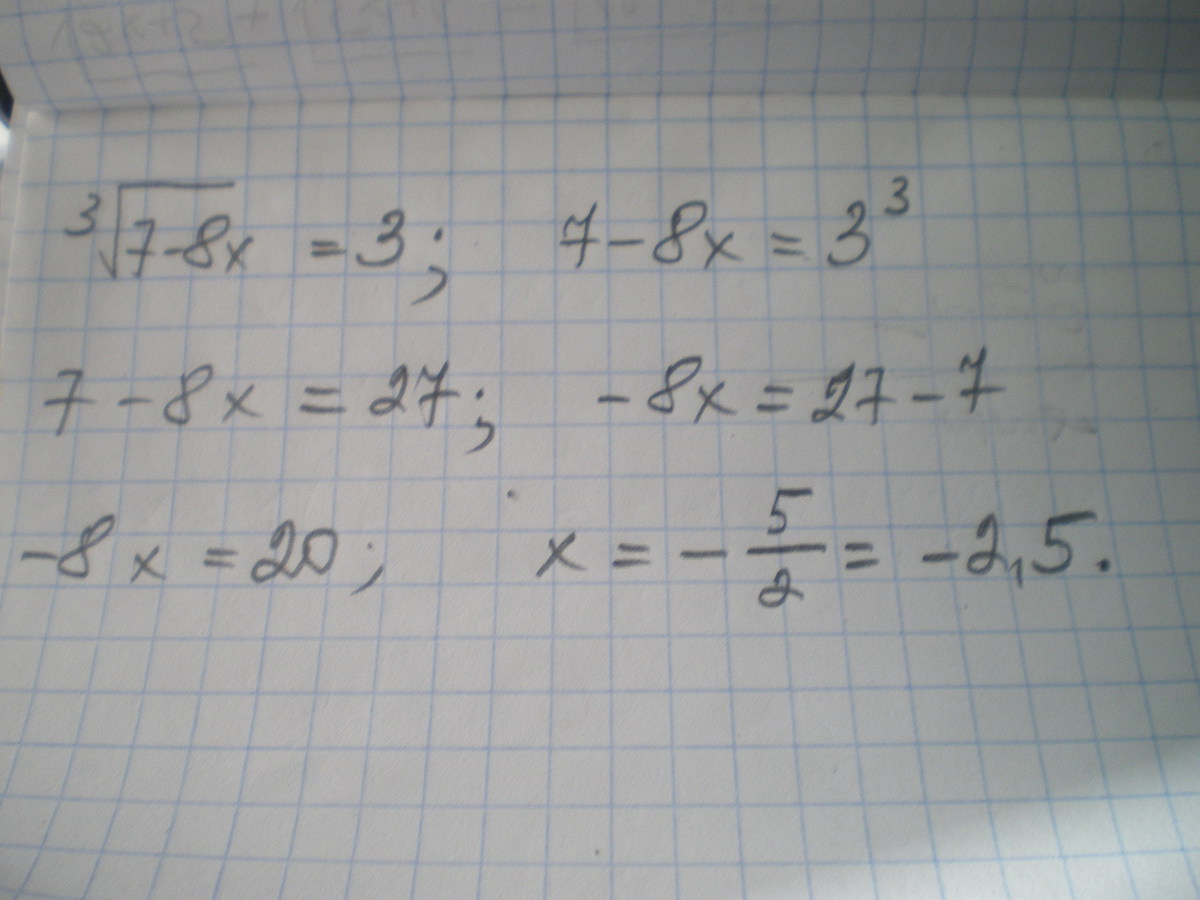 ∛(7-8x) = 3; 7-8x = 3³
7-8x = 27; -8x = 27-7
-8x = 20; x = -5/2 = -2,5.